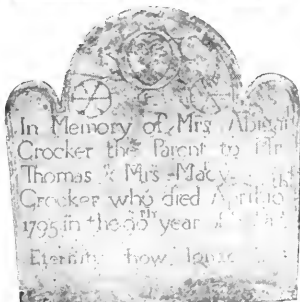 In Memory of Mrs Abigail
Crocker the Parent to Mr
Thomas & Mrs Macy
Crocker who died April 10
th
1795 in the year
Eternity how long